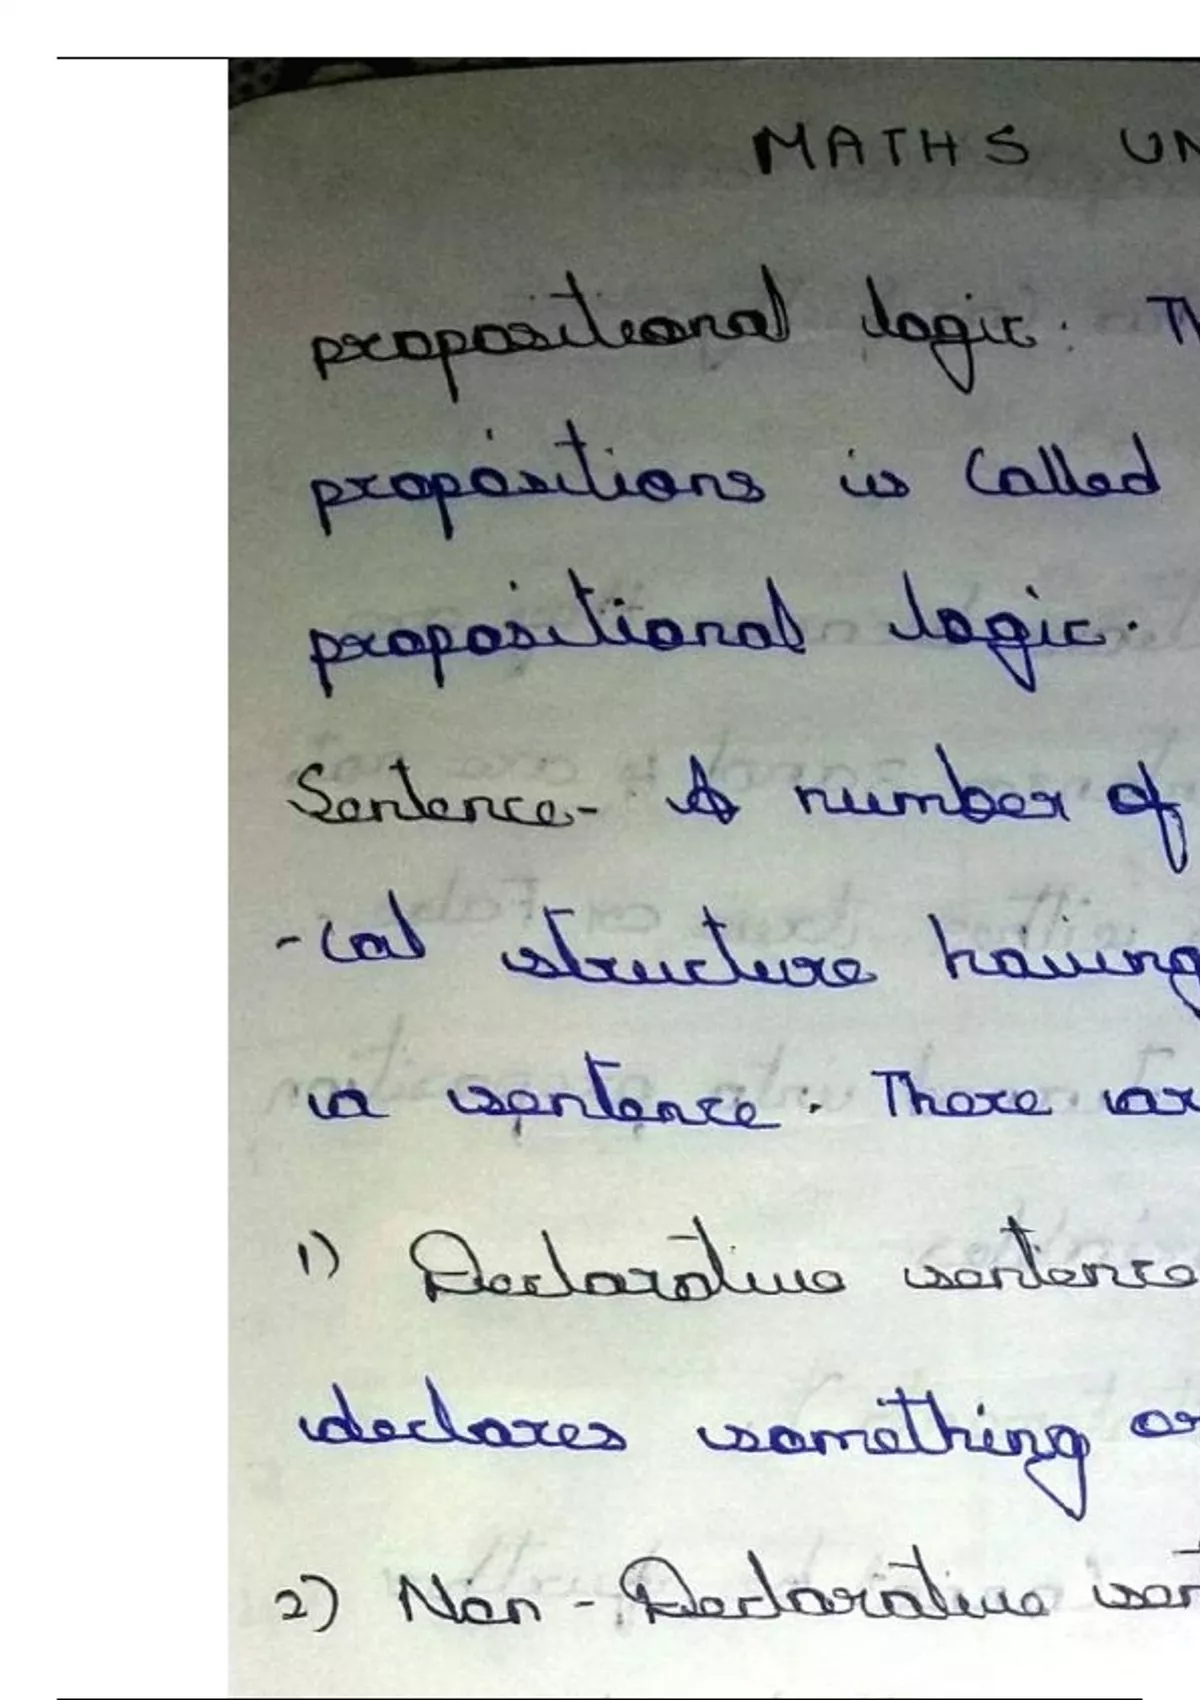 MATHS UN
propositional logic. Th
propositions is called
propositional logic.
Sentence- A number of
-cal structure having
a sentence. There ar
1) Declarative sentence
declares something or
2) Non-Declarative sen